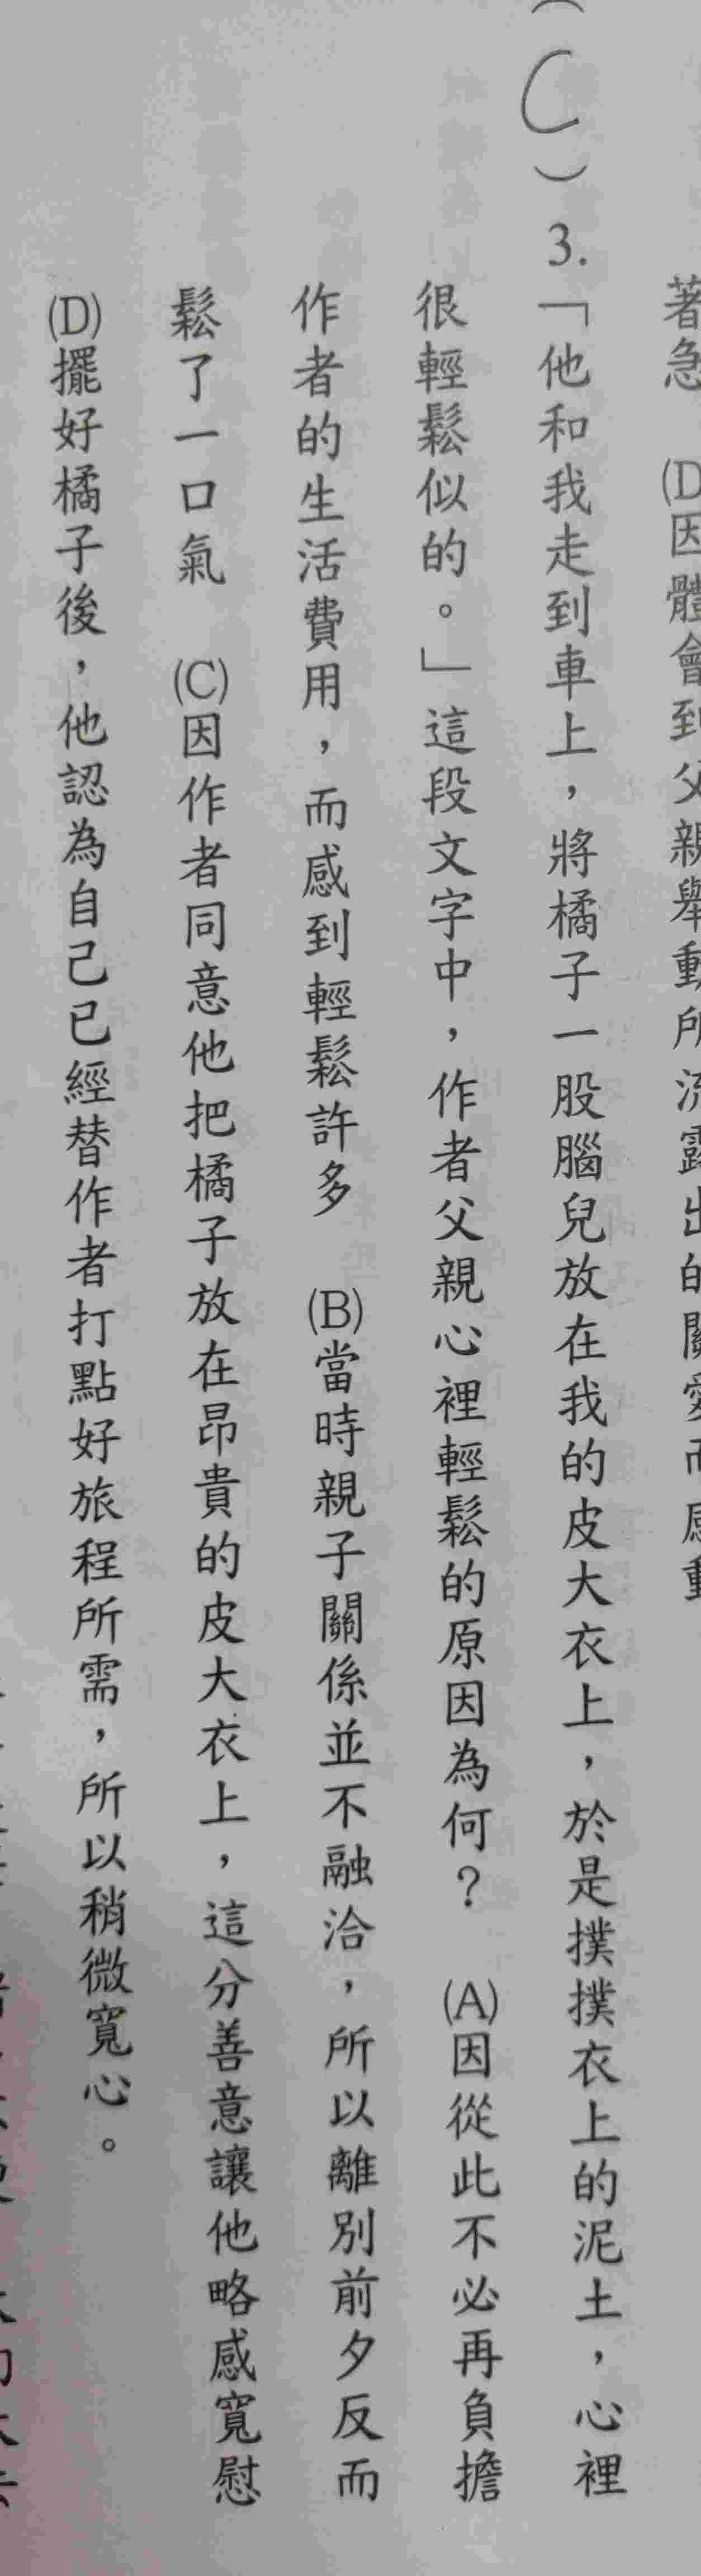 著急 (D)因體會到父親舉動所流露出的關愛而感動
(C)3.「他和我走到車上，將橘子一股腦兒放在我的皮大衣上，於是撲撲衣上的泥土，心裡
很輕鬆似的。」這段文字中，作者父親心裡輕鬆的原因為何？ (A)因從此不必再負擔
作者的生活費用，而感到輕鬆許多 (B)當時親子關係並不融洽，所以離別前夕反而
鬆了一口氣 (C)因作者同意他把橘子放在昂貴的皮大衣上，這分善意讓他略感寬慰
(D)擺好橘子後，他認為自己已經替作者打點好旅程所需，所以稍微寬心。